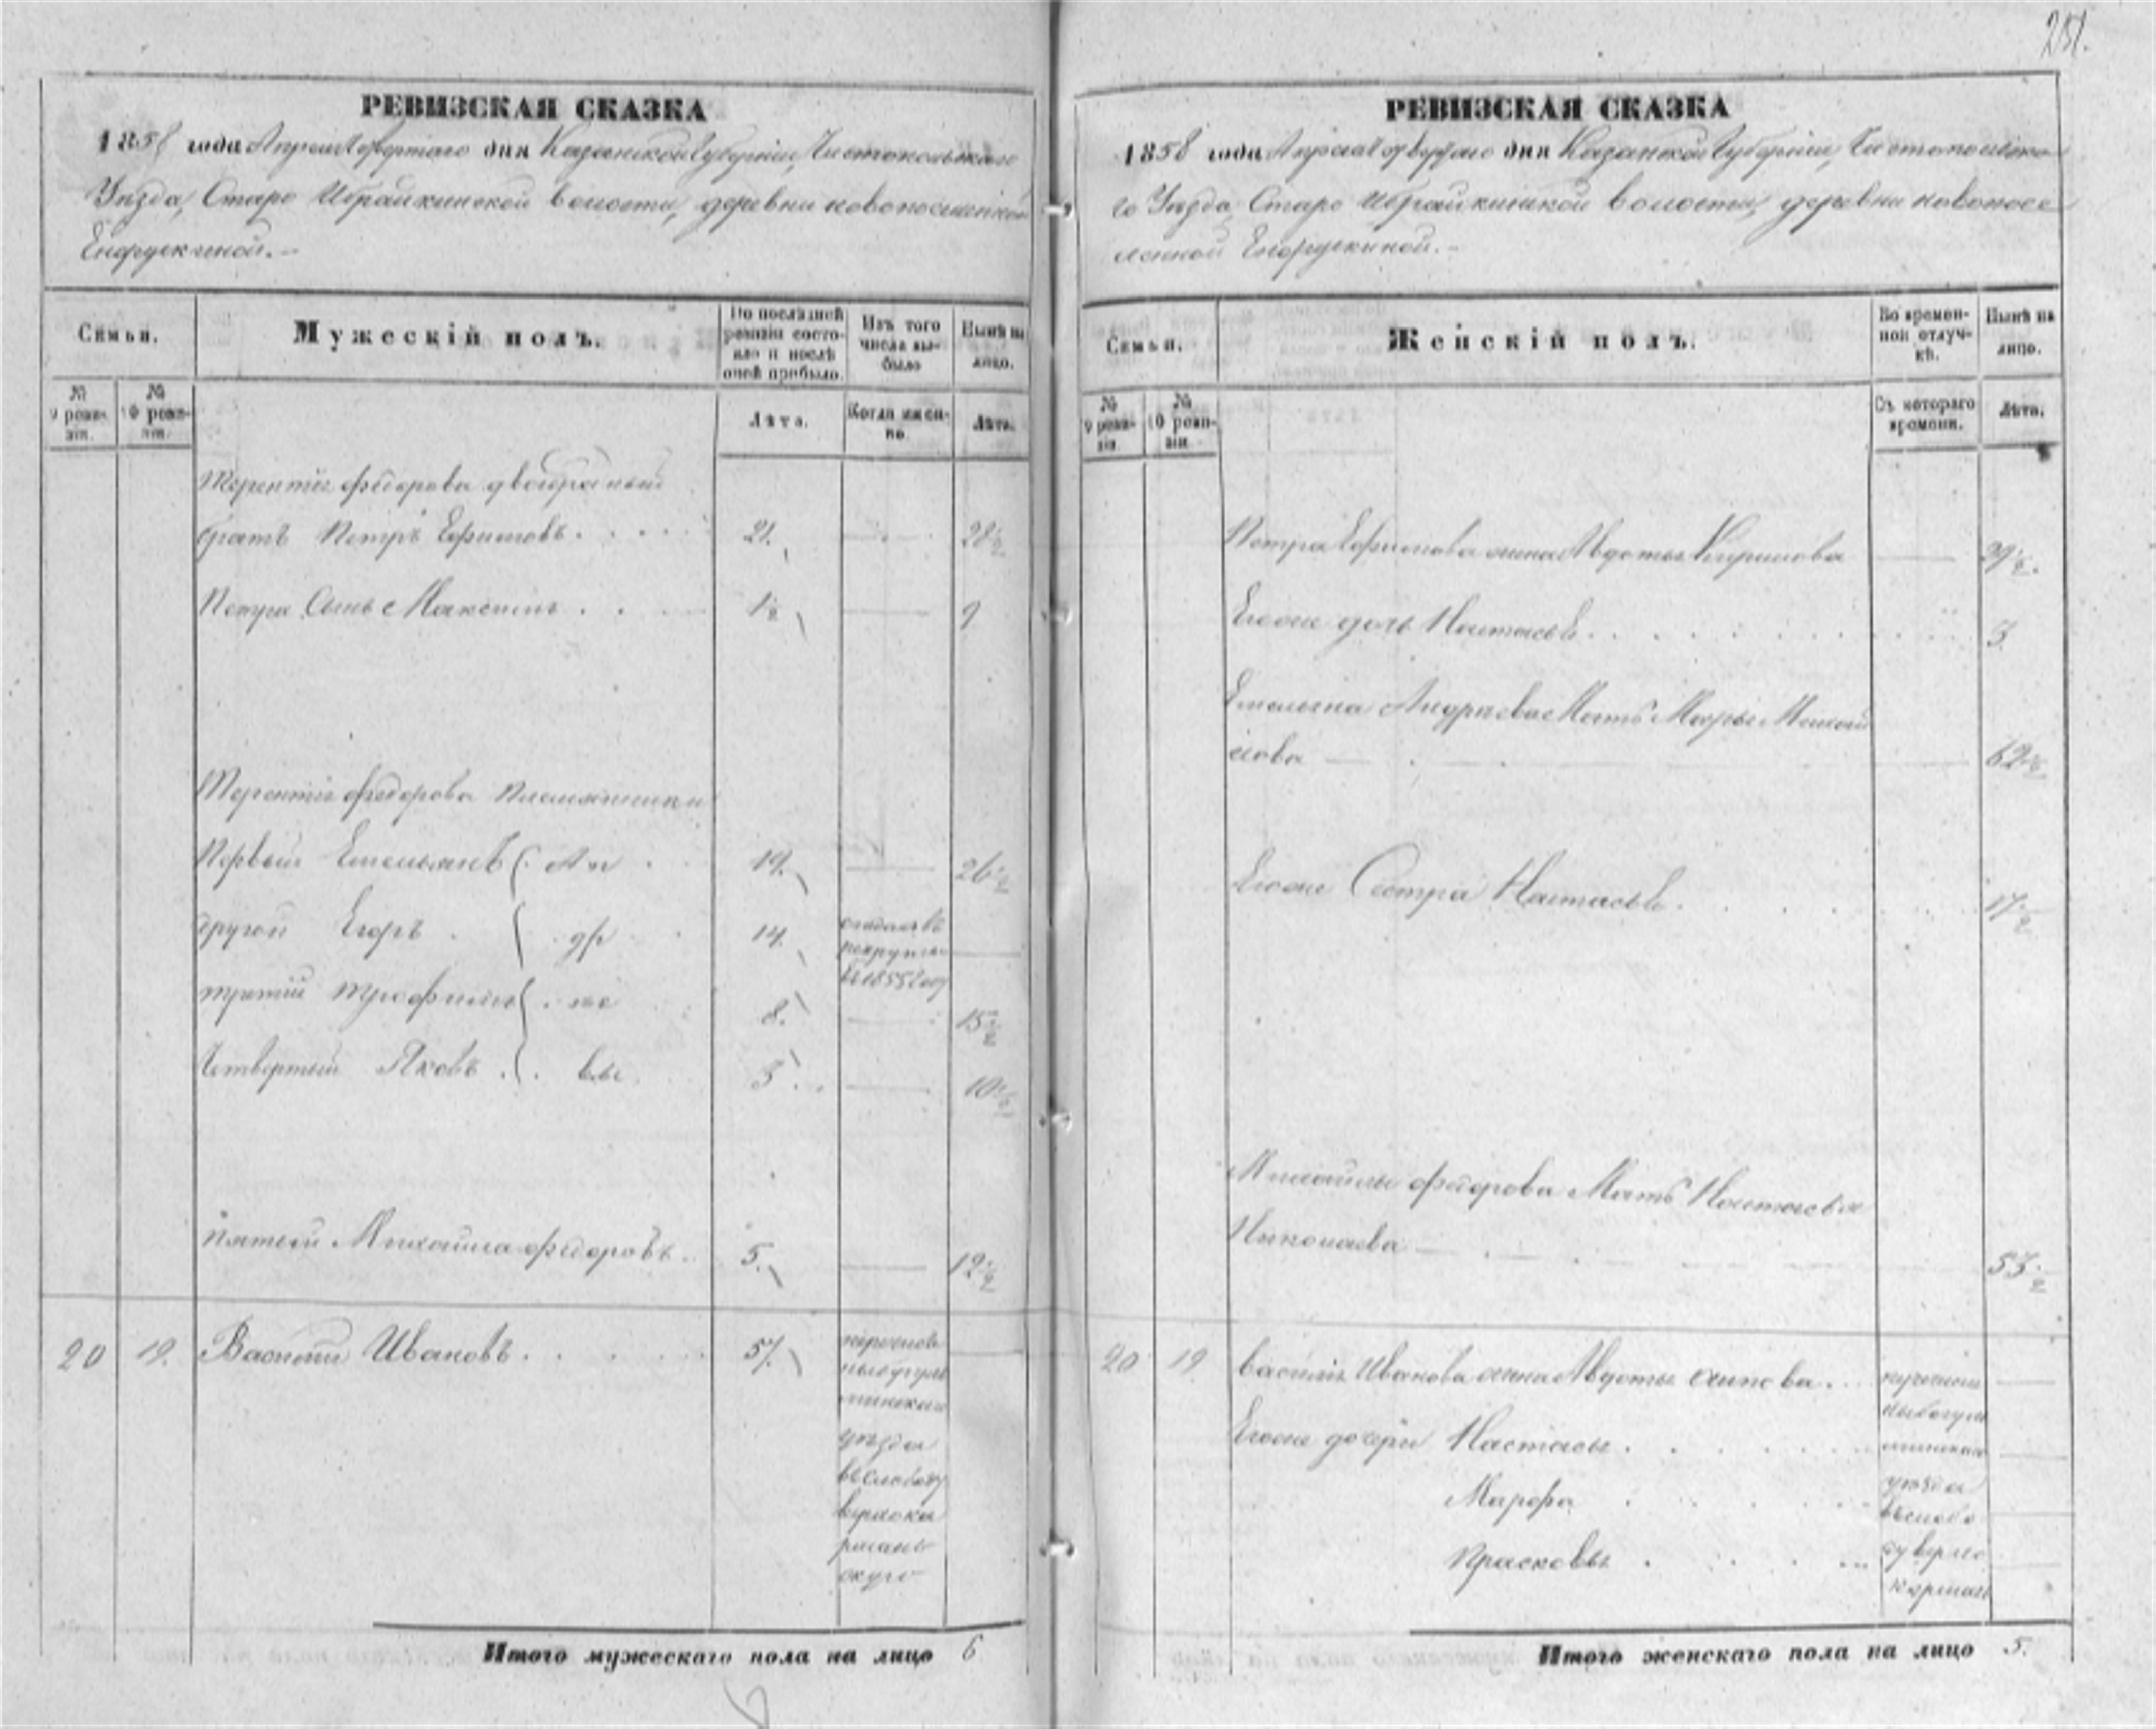 251.
РЕВИЗСКАЯ СКАЗКА
1858 года Апреля четвертаго дня Казанской Губерніи, Чистопольскаго
Уезда, Старо Ибрайкинской волости, деревни новопоселенной
Семьи.
Мужескій полъ.
По последней ревизіи состояло и после оной прибыло.
Изъ того числа выбыло
Ныне на лицо.
№ 9 ревизіи.
№ 10 ревизіи.
Лѣта.
Когда именно.
Лѣта.
Терентія Федорова двоюродный
братъ Петръ Ефимовъ. 21. 28½
Петра Сынъ Максимъ 1½ 9
Терентія Федорова племянники
Первый Емельянъ Ан 19. 26½
другой Егоръ др 14. отданъ въ рекруты въ 1855 году
третій Трофимъ 8. 15½
Четвертый Яковъ вы 3. 10½
пятый Михайла Федоровъ. 5. 12½
20 19. Василій Ивановъ 57.
уезда
Итого мужескаго пола на лицо 6
РЕВИЗСКАЯ СКАЗКА
1858 года Апреля четвертаго дня Казанской Губерніи, Чистопольска-
го Уезда, Старо Ибрайкинской волости, деревни новопосе-
ленной
Семьи.
Женскій полъ.
Во времен-
ной отлуч-
кѣ.
Нынѣ на
лицо.
№ 9 ревизіи.
№ 10 ревизіи
Съ котораго
времени.
Лѣта.
Петра Ефимова жена Авдотья Кирилова 29½.
Его же дочь Настасья 3
Емельяна Андреева Мать Марья Михай
лова 62½
Его же Сестра Настасья. 17½
Михайлы Федорова Мать Настасья
Николаева 53½
20 19 Василья Иванова жена Авдотья
Его же дочери Настасья
Марфа
Прасковья
уезда
Итого женскаго пола на лицо 5.